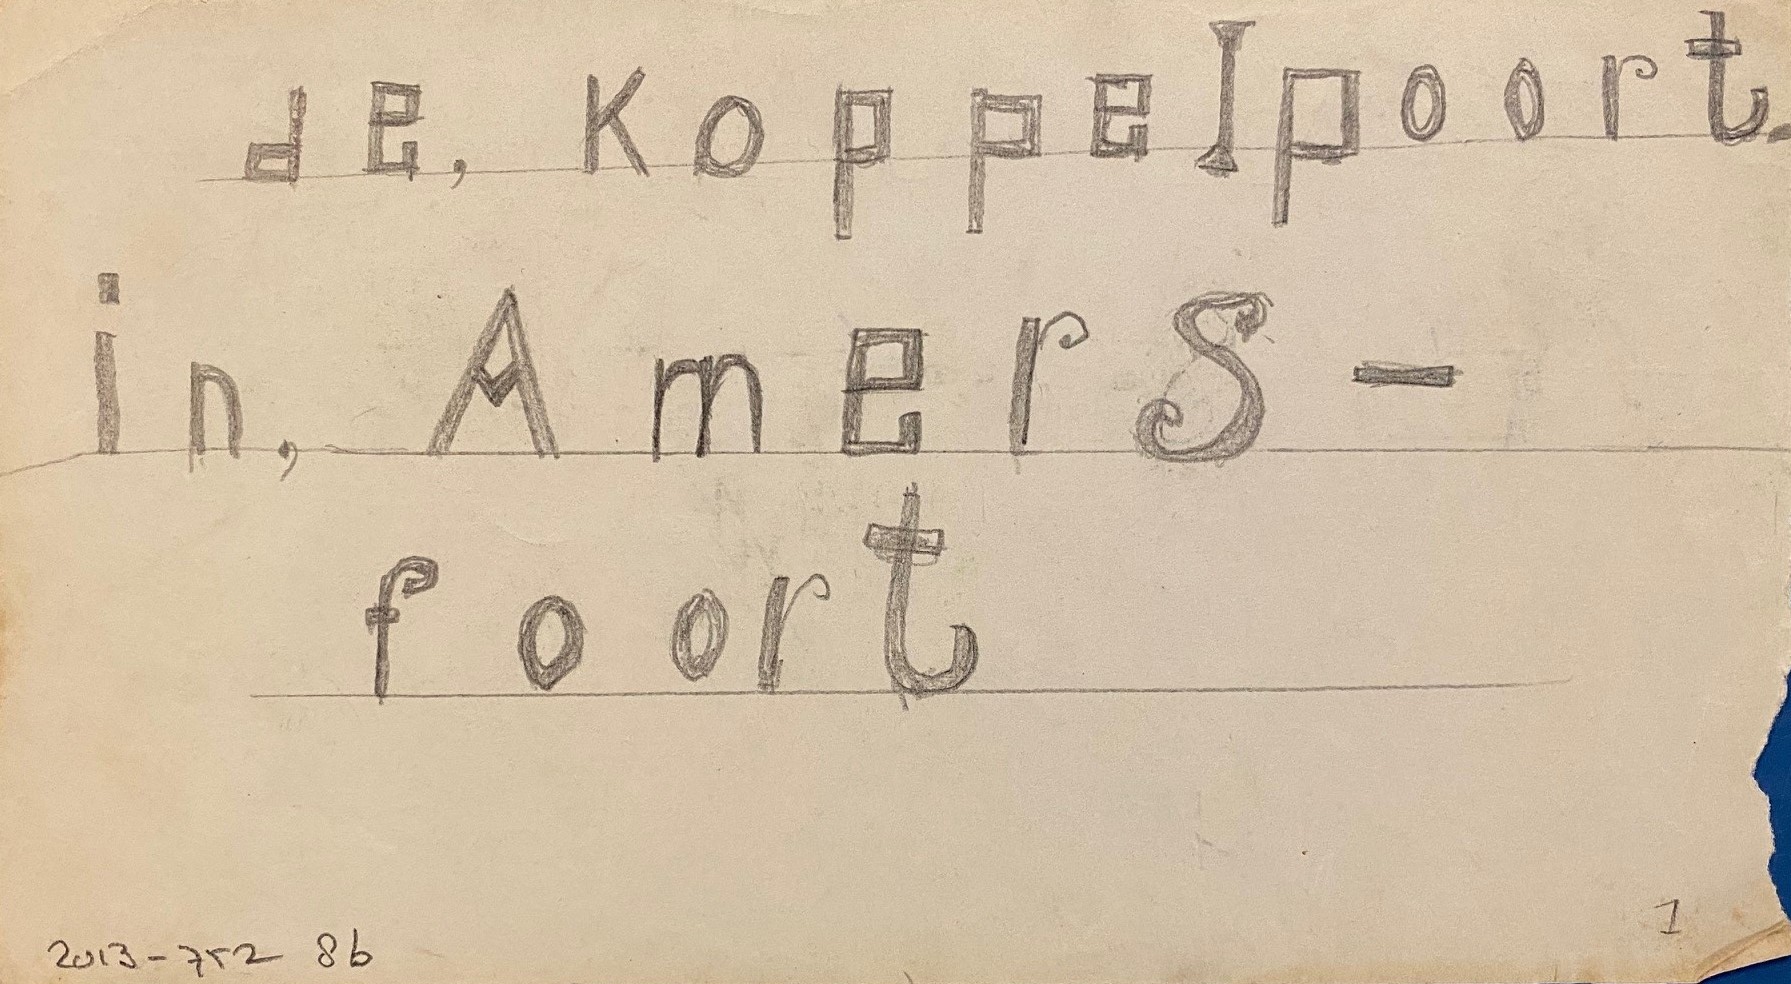 de, Koppelpoort.
in, Amers-
foort
2013-752 8b
1